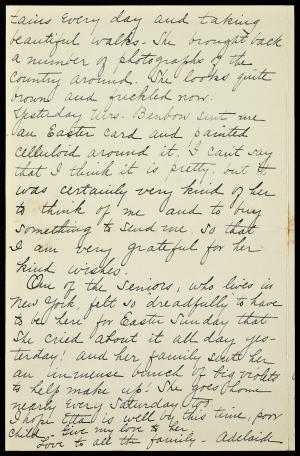 tains every day and taking
beautiful walks. She brought back
a number of photographs of the
country around. She looks quite
brown and freckled now.
Yesterday Mrs. Benbow sent me
an Easter card and painted
celluloid around it. I can't say
that I think it is pretty, but it
was certainly very kind of her
to think of me and to buy
something to send me, so that
I am very grateful for her
kind wishes.
One of the Seniors, who lives in
New York, felt so dreadfully to have
to be here for Easter Sunday that
she cried about it all day yes-
terday! and her family sent her
an immense bunch of big violets
to help make up! She goes home
nearly every Saturday, too.
I hope Etta is well by this time, poor
child. Give my love to her.
Love to all the family - Adelaide